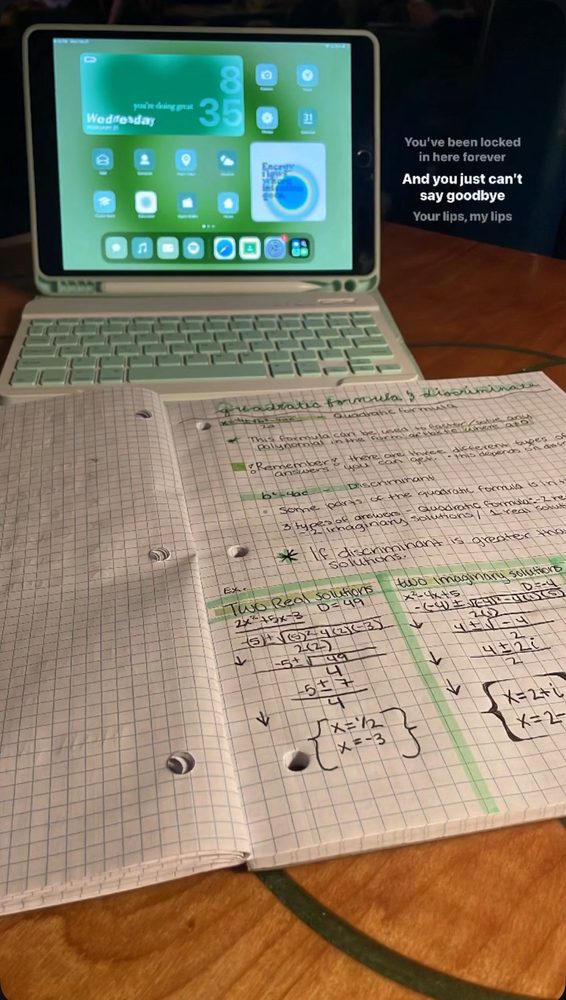 you're doing great
8
35
Wednesday
31
Energy
flows
where
intention
goes.
You've been locked
in here forever
And you just can't
say goodbye
Your lips, my lips
quadratic formula & discriminate
Quadratic formula
* This formula can be used to solve any
polynomial in the form
where a≠0
Remember: there are three different types of
answers you can get, this depends on
b²-4ac - Discriminant
Some parts of the quadratic formula is in
3 types of answers - quadratic formula - 2
2 imaginary solutions / 1 real
* If discriminant is greater
solutions.
Ex.
Two Real solutions
D=49
2x²+5x-3
-(5)±√(5)²-4(2)(-3)
2(2)
↓ -5±√49
4
-5±7
4
↓ {x=1/2
x=-3}
two Imaginary solutions
D=-4
x²-4x+5
-(-4)±√(-4)²-4(1)(5)
2(1)
↓ 4±√-4
2
↓ 4±2i
2
↓ {x=2+i
x=2-